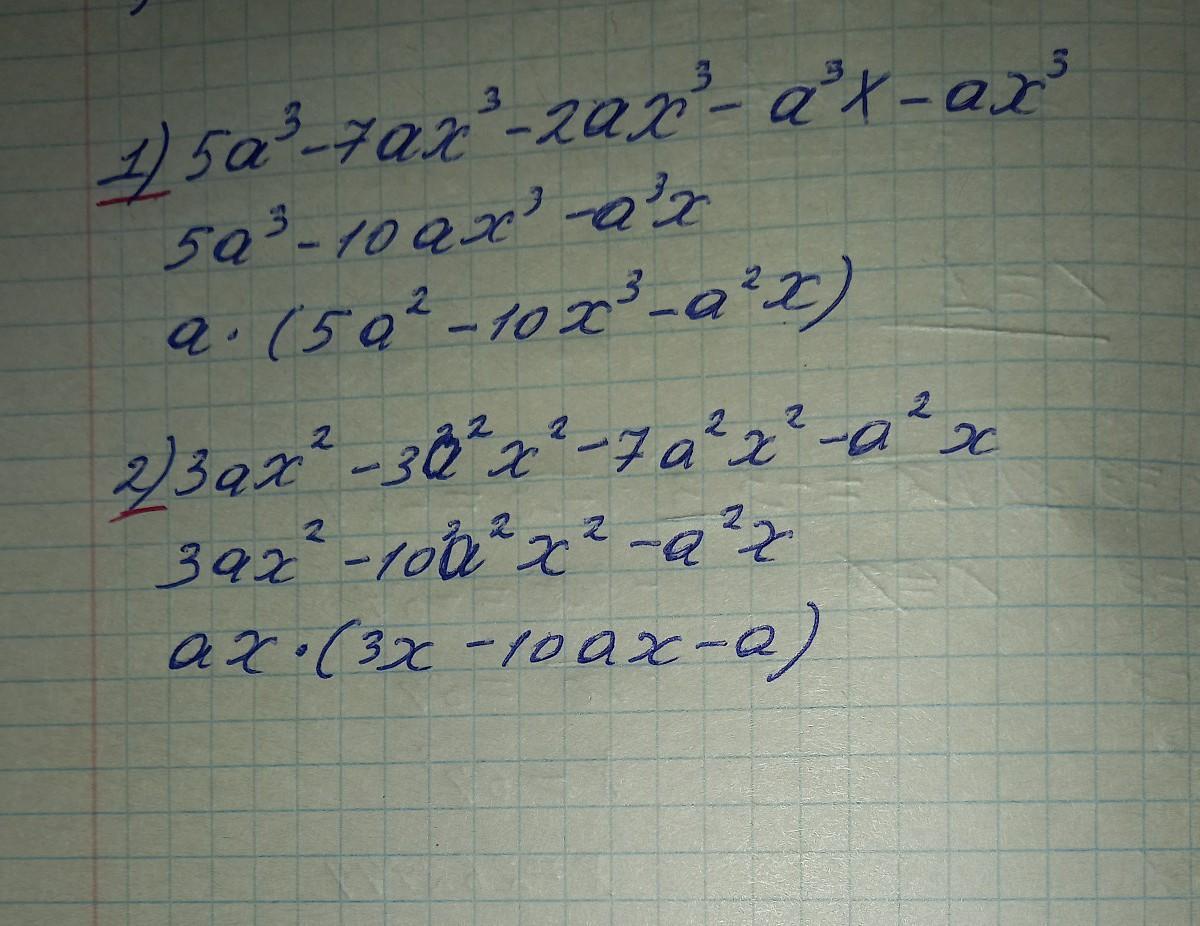 1) 5a³ - 7ax³ - 2ax³ - a³x - ax³
5a³ - 10ax³ - a³x
a · (5a² - 10x³ - a²x)
2) 3ax² - 3a²x² - 7a²x² - a²x
3ax² - 10a²x² - a²x
ax · (3x - 10ax - a)